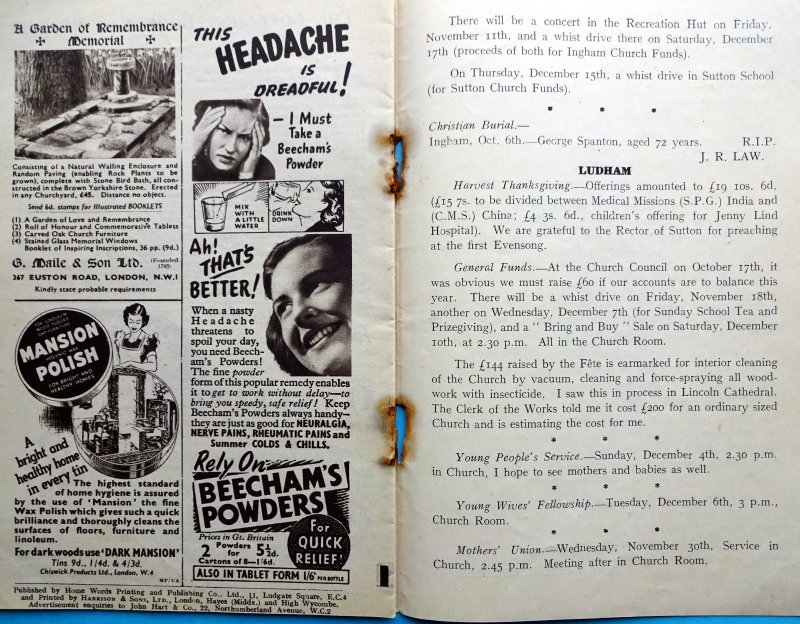 A Garden of Remembrance
Memorial
Consisting of a Natural Walling Enclosure and
Random Paving (enabling Rock Plants to be
grown), complete with Stone Bird Bath, all con-
structed in the Brown Yorkshire Stone. Erected
in any Churchyard, £45. Distance no object.
Send 6d. stamps for Illustrated BOOKLETS
(1) A Garden of Love and Remembrance
(2) Roll of Honour and Commemorative Tablets
(3) Carved Oak Church Furniture
(4) Stained Glass Memorial Windows
Booklet of Inspiring Inscriptions, 36 pp. (9d.)
G. Maile & Son Ltd. (Founded 1785)
367 EUSTON ROAD, LONDON, N.W.1
Kindly state probable requirements
FOR LINOLEUM
WOOD FLOORS
FURNITURE
MANSION
HYGIENIC WAX
POLISH
FOR BRIGHT AND
HEALTHY HOMES
A
bright and
healthy home
in every tin
The highest standard
of home hygiene is assured
by the use of 'Mansion' the fine
Wax Polish which gives such a quick
brilliance and thoroughly cleans the
surfaces of floors, furniture and
linoleum.
For dark woods use 'DARK MANSION'
Tins 9d., 1/4d. & 4/3d.
Chiswick Products Ltd., London, W.4
MP/VA
THIS
HEADACHE
IS
DREADFUL!
— I Must
Take a
Beecham's
Powder
MIX
WITH
A LITTLE
WATER
DRINK
DOWN
Ah!
THAT'S
BETTER!
When a nasty
Headache
threatens to
spoil your day,
you need Beech-
am's Powders!
The fine powder
form of this popular remedy enables
it to get to work without delay—to
bring you speedy, safe relief! Keep
Beecham's Powders always handy—
they are just as good for NEURALGIA,
NERVE PAINS, RHEUMATIC PAINS and
Summer COLDS & CHILLS.
Rely On
BEECHAM'S
POWDERS
Prices in Gt. Britain
2 Powders for 5½d.
Cartons of 8—1/6d.
For
QUICK
RELIEF!
ALSO IN TABLET FORM 1/6 PER BOTTLE
Published by Home Words Printing and Publishing Co., Ltd., 11, Ludgate Square, E.C.4
and Printed by HARRISON & SONS, LTD., London, Hayes (Middx.) and High Wycombe.
Advertisement enquiries to John Hart & Co., 22, Northumberland Avenue, W.C.2
There will be a concert in the Recreation Hut on Friday,
November 11th, and a whist drive there on Saturday, December
17th (proceeds of both for Ingham Church Funds).
On Thursday, December 15th, a whist drive in Sutton School
(for Sutton Church Funds).
* * *
Christian Burial.—
Ingham, Oct. 6th.—George Spanton, aged 72 years. R.I.P.
J. R. LAW.
LUDHAM
Harvest Thanksgiving.—Offerings amounted to £19 10s. 6d.
(£15 7s. to be divided between Medical Missions (S.P.G.) India and
(C.M.S.) China; £4 3s. 6d., children's offering for Jenny Lind
Hospital). We are grateful to the Rector of Sutton for preaching
at the first Evensong.
General Funds.—At the Church Council on October 17th, it
was obvious we must raise £60 if our accounts are to balance this
year. There will be a whist drive on Friday, November 18th,
another on Wednesday, December 7th (for Sunday School Tea and
Prizegiving), and a " Bring and Buy " Sale on Saturday, December
10th, at 2.30 p.m. All in the Church Room.
The £144 raised by the Fête is earmarked for interior cleaning
of the Church by vacuum, cleaning and force-spraying all wood-
work with insecticide. I saw this in process in Lincoln Cathedral.
The Clerk of the Works told me it cost £200 for an ordinary sized
Church and is estimating the cost for me.
* * *
Young People's Service.—Sunday, December 4th, 2.30 p.m.
in Church, I hope to see mothers and babies as well.
* * *
Young Wives' Fellowship.—Tuesday, December 6th, 3 p.m.,
Church Room.
* * *
Mothers' Union.—Wednesday, November 30th, Service in
Church, 2.45 p.m. Meeting after in Church Room.